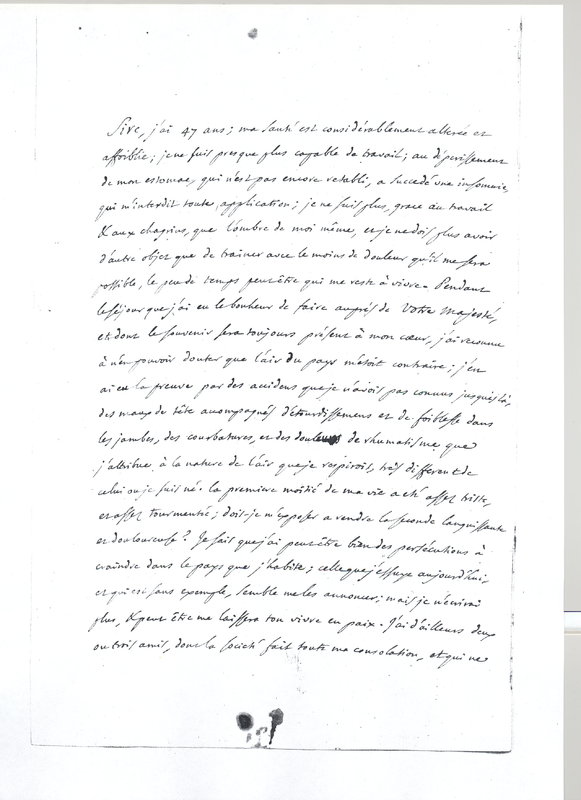 Sire, j'ai 47 ans ; ma santé est considérablement alterée et
affoiblie ; je ne suis presque plus capable de travail ; au dépérissement
de mon estomac, qui n'est pas encore retabli, a succedé une insomnie,
qui m'interdit toute application ; je ne suis plus, grace au travail
& aux chagrins, que l'ombre de moi même, et je ne dois plus avoir
d'autre objet que de trainer avec le moins de douleur qu'il me sera
possible, le peu de temps peut être qui me reste à vivre. Pendant
le séjour que j'ai eu le bonheur de faire auprés de Votre Majesté,
et dont le souvenir sera toujours présent à mon cœur, j'ai reconnu
à n'en pouvoir douter que l'air du pays m'étoit contraire ; j'en
ai eu la preuve par des accidens que je n'avois pas connus jusques là,
des maux de tête accompagnés d'étourdissemens et de foiblesse dans
les jambes, des courbatures, et des douleurs de rhumatisme que
j'attribue, à la nature de l'air que je respirois, très different de
celui ou je suis né. la premiere moitié de ma vie a été assez triste,
et assez tourmentée ; dois-je m'exposer a rendre la seconde languissante
et douloureuse ? Je sais que j'ai peut être bien des persécutions à
craindre dans le pays que j'habite ; celle que j'essuye aujourd'hui,
et qui est sans exemple, semble me les annoncer ; mais je n'écrirai
plus, & peut être me laissera t'on vivre en paix. J'ai d'ailleurs deux
ou trois amis, dont la société fait toute ma consolation, et qui ne